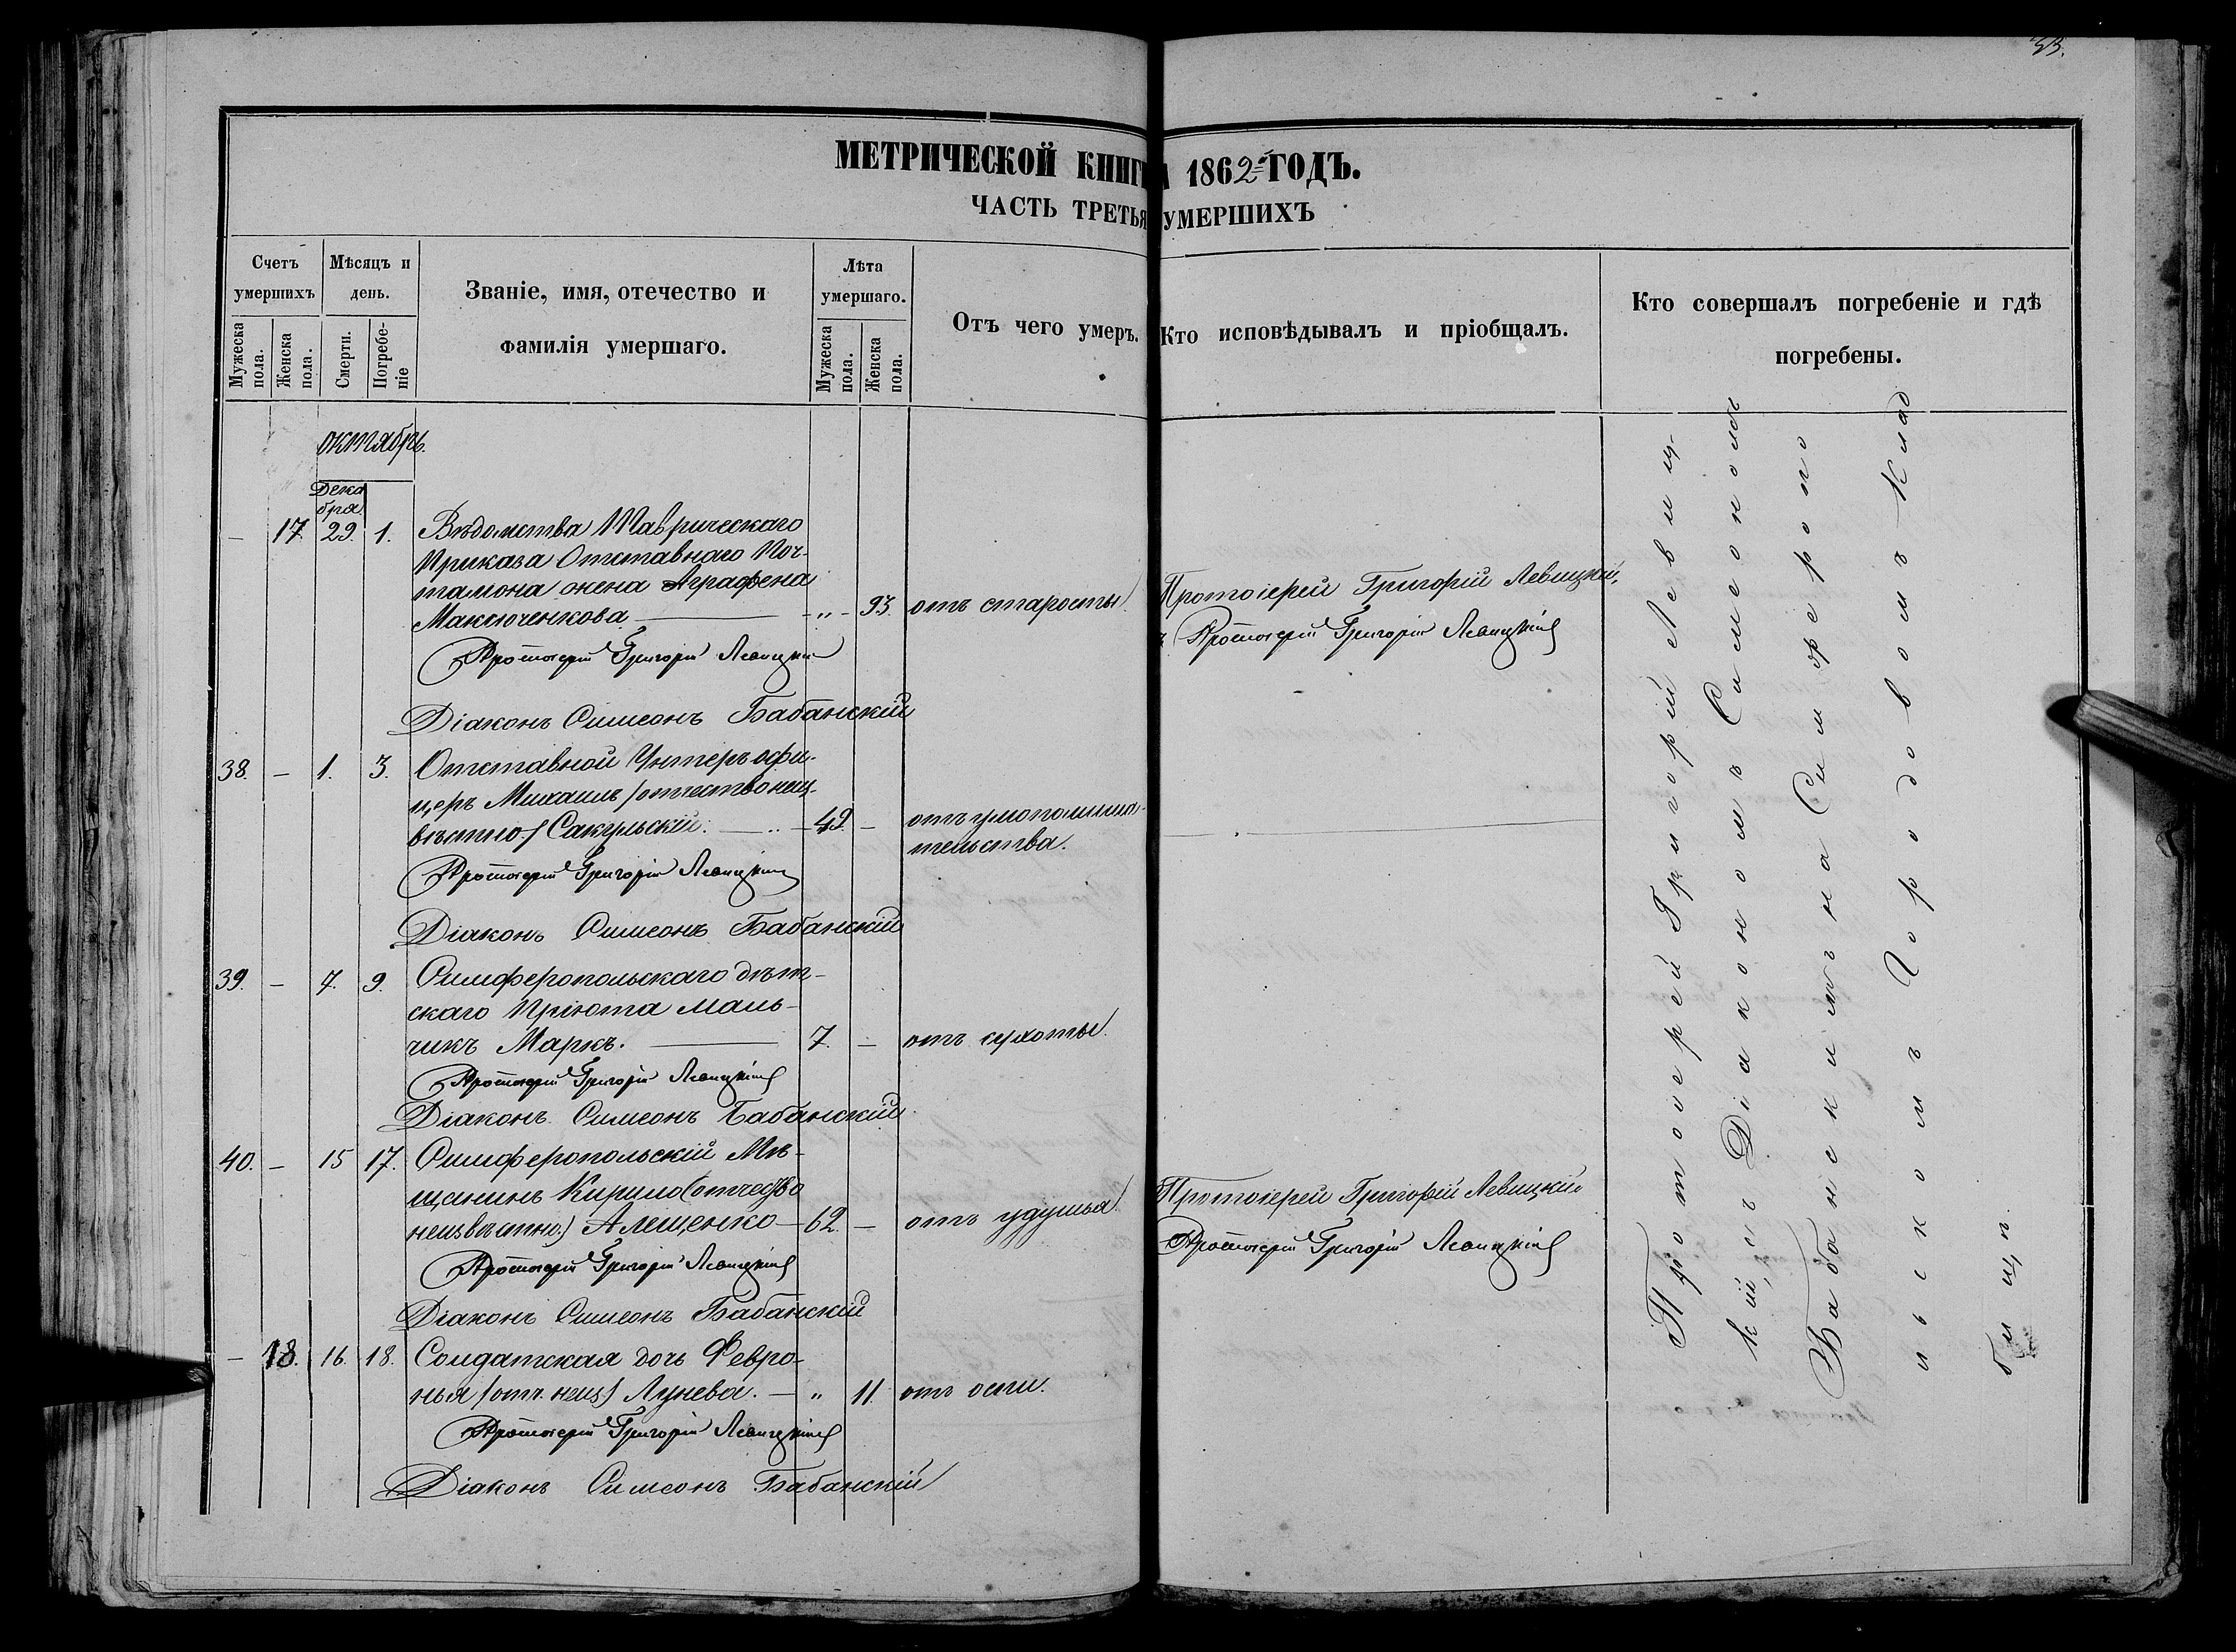 33.
МЕТРИЧЕСКОЙ КНИГИ 1862 ГОДЪ.
ЧАСТЬ ТРЕТЬЯ УМЕРШИХЪ
Счетъ умершихъ
Мужеска пола.
Женска пола.
Мѣсяцъ и день.
Смерти.
Погребеніе
Званіе, имя, отечество и фамилія умершаго.
Лѣта умершаго.
Мужеска пола.
Женска пола.
Отъ чего умеръ.
Кто исповѣдывалъ и пріобщалъ.
Кто совершалъ погребеніе и гдѣ погребены.
октябрь.
Декабря
— 17. 29. 1. Вѣдомства Таврическаго
Приказа Отставнаго Поч-
тамона жена Аграфена
Максюченкова — „ — 93. отъ старости. Протоіерей Григорій Левицкій,
Протоіерей Григорій Левицкій
Протоіерей Григорій Левицкій
Діаконъ Симеонъ Бабанскій
38. — 1. 3. Отставной Унтеръ офи-
церъ Михаилъ /отчество неиз-
вѣстно/ Сакульскій. — 49. — отъ умопомѣша-
тельства.
Протоіерей Григорій Левицкій
Діаконъ Симеонъ Бабанскій
39. — 7. 9. Симферопольскаго дѣт-
скаго Пріюта маль-
чикъ Маркъ. — 7. — отъ сухоты.
Протоіерей Григорій Левицкій
Діаконъ Симеонъ Бабанскій
40. — 15 17. Симферопольскій Мѣ-
щанинъ Кирило (отчество
неизвѣстно.) Алещенко — 62. — отъ удушья. Протоіерей Григорій Левицкій
Протоіерей Григорій Левицкій
Протоіерей Григорій Левицкій
Діаконъ Симеонъ Бабанскій
— 18. 16. 18. Солдатская дочь Февро-
нья /отч. неиз/ Лунева. — „ 11. отъ оспи.
Протоіерей Григорій Левицкій
Діаконъ Симеонъ Бабанскій
Протоіерей Григорій Левиц-
кій, съ Діакономъ Симеономъ
Бабанскимъ на Симферопо
льскомъ Городовомъ Клад
бищѣ.